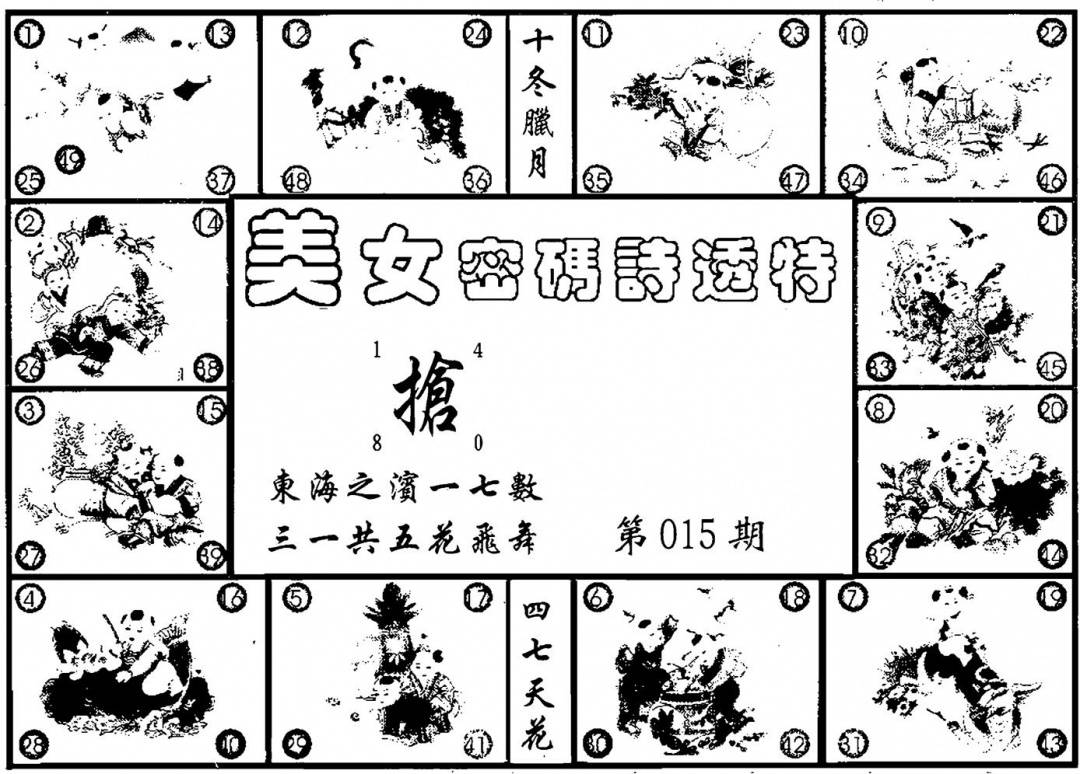 1 13 12 24 十冬臘月 11 23 10 22
49
25 37 48 36 35 47 34 46
2 14 美女密碼詩透特 9 21
1 4
26 38 搶 33 45
3 15 8 0 8 20
東海之濱一七數
三一共五花飛舞 第015期
27 39 32 44
4 16 5 17 四七天花 6 18 7 19
28 40 29 41 30 42 31 43